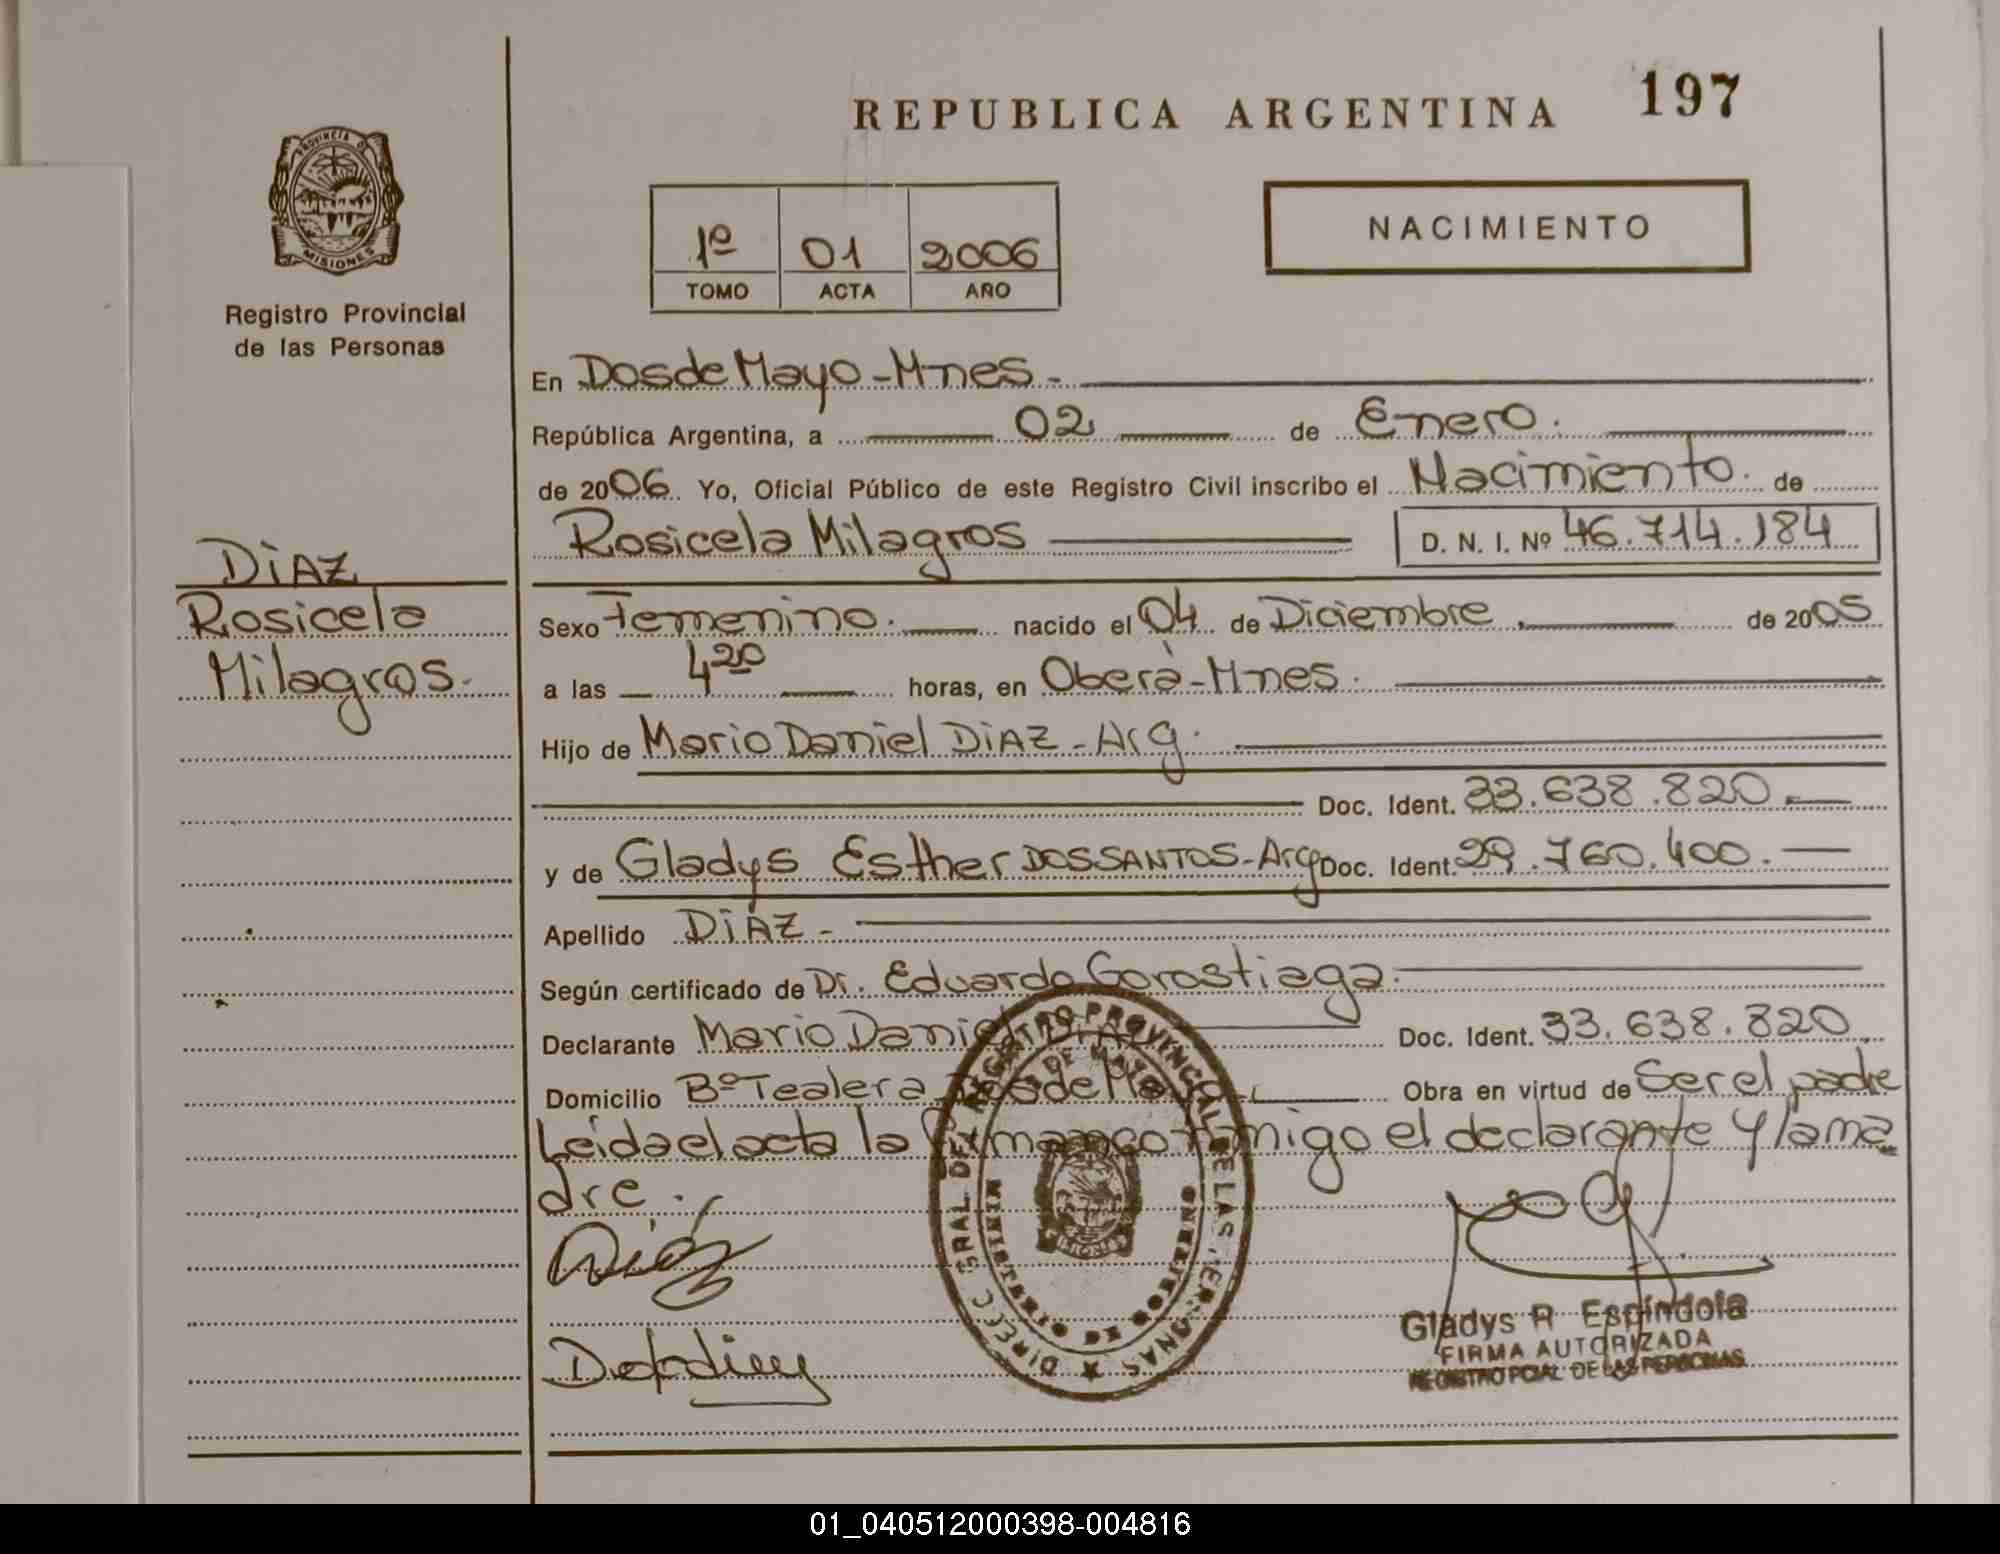 REPUBLICA ARGENTINA 197
PROVINCIA DE
MISIONES
Registro Provincial
de las Personas
1º 01 2006
TOMO ACTA AÑO
NACIMIENTO
En Dos de Mayo - Mnes.
República Argentina, a 02 de Enero.
de 2006. Yo, Oficial Público de este Registro Civil inscribo el Nacimiento. de
Rosicela Milagros D. N. I. Nº 46.714.184
DiAZ
Rosicela
Milagros.
Sexo Femenino. nacido el 04 de Diciembre de 2005
a las 4 20 horas, en Oberá - Mnes.
Hijo de Mario Daniel DiAZ - Arg.
Doc. Ident. 33.638.820.
y de Gladys Esther DOSSANTOS - Arg Doc. Ident. 29.760.400.
Apellido DiAZ -
Según certificado de Dr. Eduardo Gorostiaga.
Declarante Mario Daniel DiAZ Doc. Ident. 33.638.820
Domicilio Bº Tealera Dos de Mayo Obra en virtud de Ser el padre
Leida el acta la firman conmigo el declarante y la ma
dre.
Diaz
DIREC. GRAL. DEL REGISTRO PROVINCIAL DE LAS PERSONAS
MINISTERIO DE GOBIERNO
DE MAYO
MISIONES
Gladys R Espíndola
FIRMA AUTORIZADA
REGISTRO PCIAL DE LAS PERSONAS
01_040512000398-004816